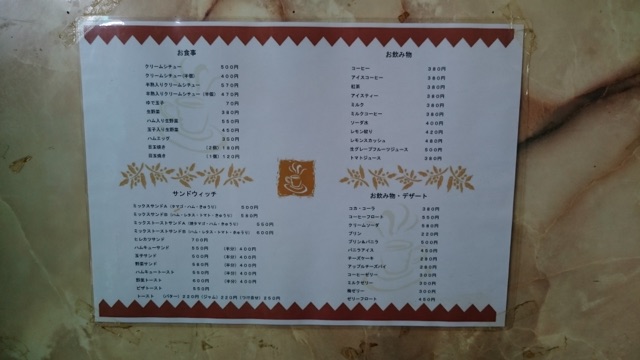 お食事
クリームシチュー 500円
クリームシチュー(半熟) 400円
半熟入りクリームシチュー 570円
半熟入りクリームシチュー (半熟) 470円
ゆで玉子 70円
生野菜 380円
ハム入り生野菜 550円
玉子入り生野菜 450円
ハムエッグ 300円
目玉焼き (2個) 180円
目玉焼き (1個) 120円
サンドウィッチ
ミックスサンドA (タマゴ・ハム・きゅうり) 500円
ミックスサンドB (ハム・レタス・トマト・きゅうり) 580円
ミックストーストサンドA (卵タマゴ・ハム・きゅうり) 550円
ミックストーストサンドB (ハム・レタス・トマト・きゅうり) 600円
ヒレカツサンド 700円
ハムキューサンド 550円 (半分) 400円
玉子サンド 500円 (半分) 400円
野菜サンド 580円 (半分) 400円
ハムキュートースト 550円 (半分) 400円
野菜トースト 550円 (半分) 400円
ピザトースト 550円
トースト (バター) 220円 (ジャム) 220円 (つけあせ) 250円
お飲み物
コーヒー 380円
アイスコーヒー 380円
紅茶 380円
アイスティー 380円
ミルク 380円
ミルクコーヒー 380円
ソーダ水 400円
レモン絞り 420円
レモンスカッシュ 480円
生グレープフルーツジュース 500円
トマトジュース 380円
お飲み物・デザート
コカ・コーラ 380円
コーヒーフロート 500円
クリームソーダ 580円
プリン 220円
プリン&バニラ 500円
バニラアイス 400円
チーズケーキ 280円
アップルチーズパイ 380円
コーヒーゼリー 500円
ミルクゼリー 500円
梅ゼリー 500円
ゼリーフロート 450円